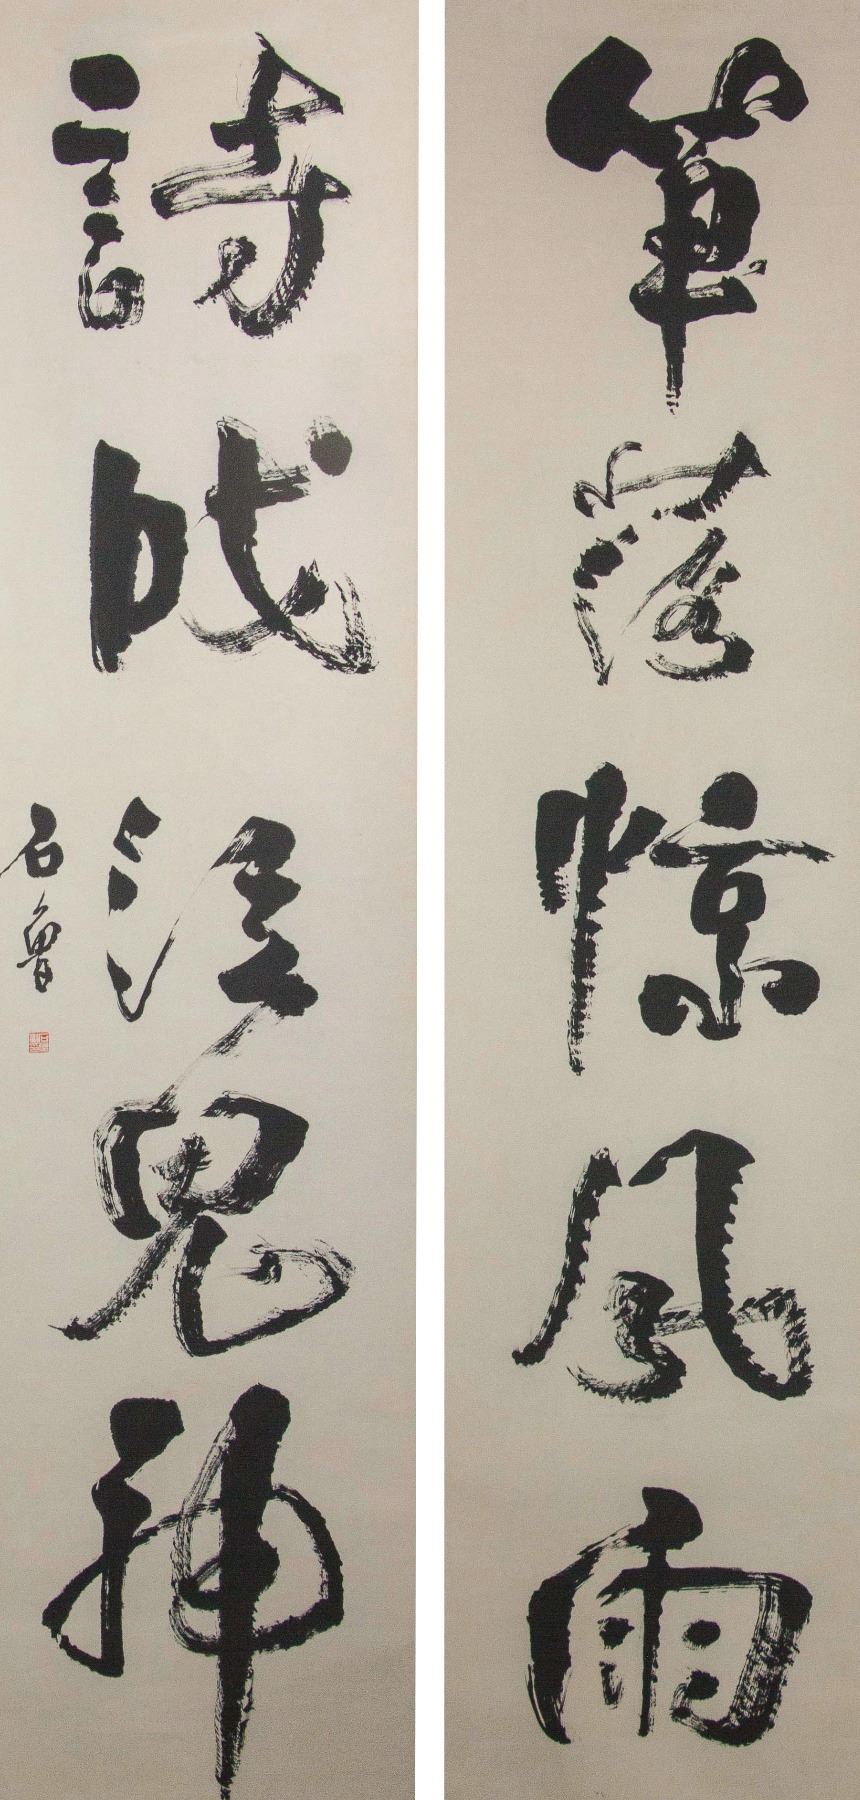 筆落惊風雨
詩成泣鬼神
石魯